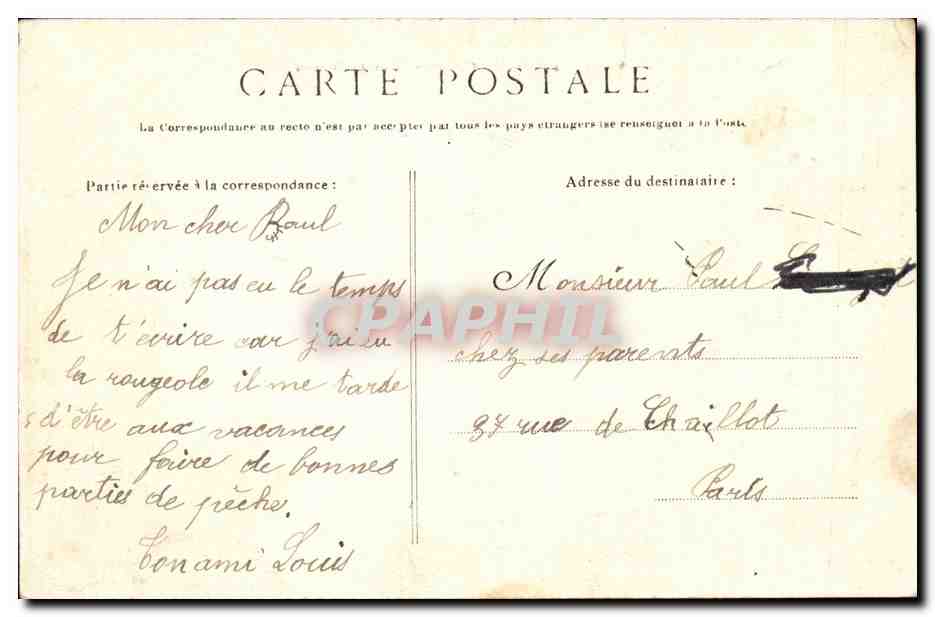 CARTE POSTALE
La Correspondance au recto n'est pas acceptée par tous les pays étrangers (se renseigner à la Poste
Partie réservée à la correspondance :
Mon cher Raul
Je n'ai pas eu le temps
de t'écrire car j'ai eu
la rougeole il me tarde
d'être aux vacances
pour faire de bonnes
parties de pêche.
Ton ami Louis
Adresse du destinataire :
Monsieur Paul
chez ses parents
37 rue de Chaillot
Paris
CPAPHIL